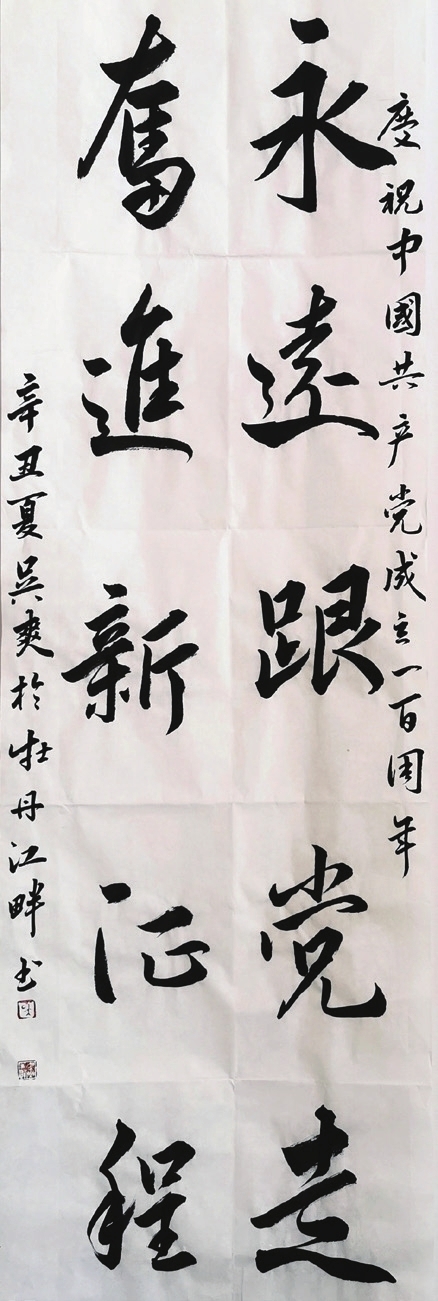 慶祝中國共产党成立一百周年
永遠跟党走
奮進新征程
辛丑夏吴爽於牡丹江畔书